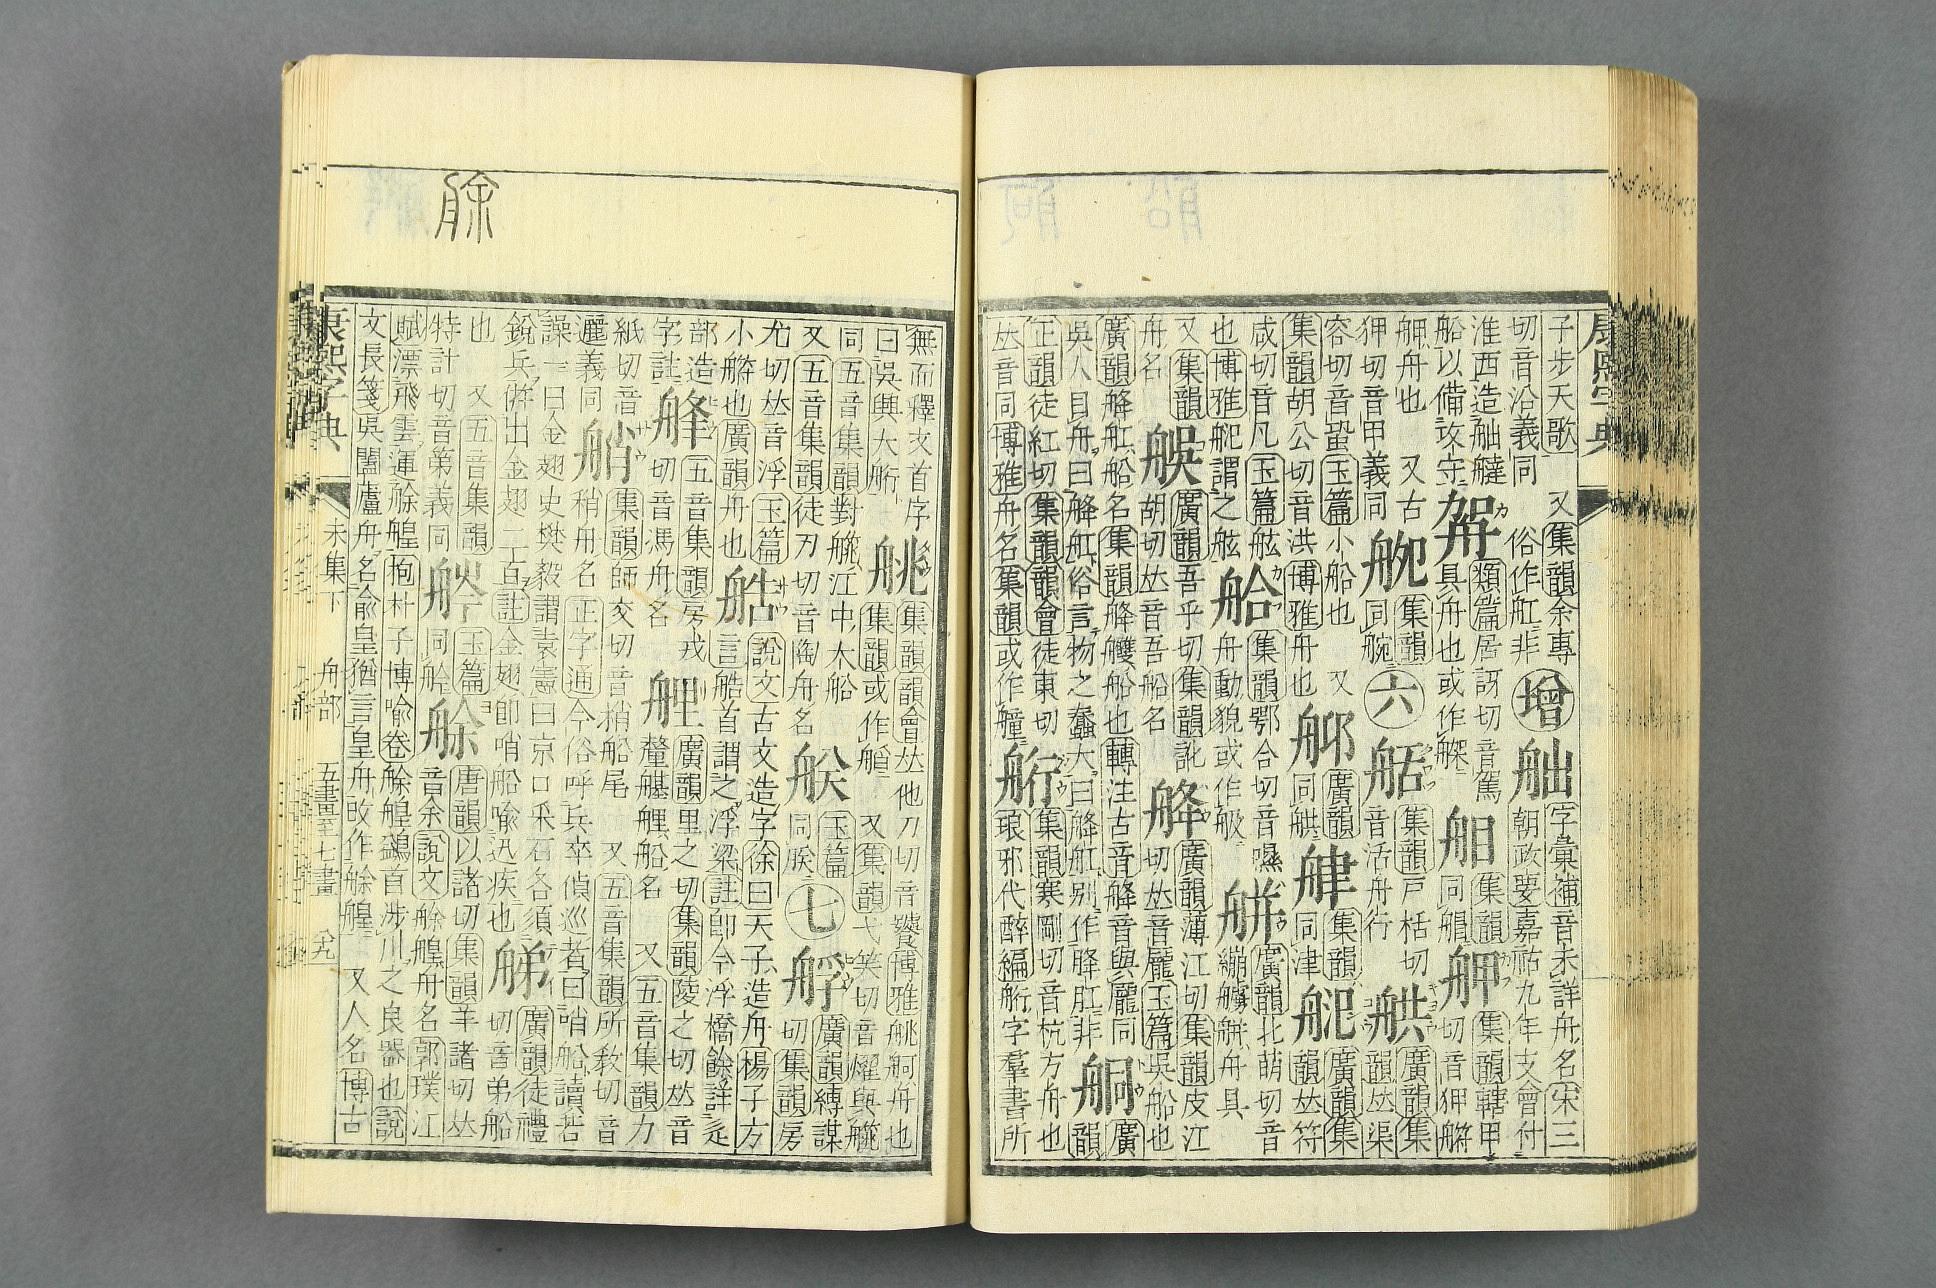 康熙字典
子步天歌 又集韻余專切音沿義同 俗作舡非 增 字彙補音未詳舟名宋三朝政要嘉祐九年支會付
淮西造船以備攻守 類篇居訝切音駕具舟也或作 集韻同 集韻轄甲切音狎
舺舟也 又古狎切音甲義同 集韻同 六 集韻戶栝切音活舟行 舼 廣韻集韻𠀤渠
容切音蛩玉篇小船也 又集韻胡公切音洪博雅舟也 廣韻同舼 集韻同津 廣韻集韻𠀤符
咸切音凡玉篇舷也博雅舥謂之舷 集韻鄂合切音 舟動貌或作 艵 廣韻北萌切音繃 舟具
又集韻舟名 廣韻吾乎切集韻訛胡切𠀤音吾船名 舽 廣韻薄江切集韻皮江切𠀤音龐玉篇吳船也
廣韻舽舡船名集韻舽艭船也轉注古音舽音與龐同吳人目舟曰舽舡俗言物之蠢大曰舽舡別作胮肛非 廣韻
正韻徒紅切集韻韻會徒東切𠀤音同博雅舟名集韻或作艟 集韻寒剛切音杭方舟也琅邪代醉編 字羣書所
艅
無而釋文首字曰吳與大 集韻韻會𠀤他刀切音饕博雅 舸舟也集韻或作 又集韻弋笑切音燿與艞
同五音集韻對艞江中大船又五音集韻徒刀切音陶舟名 玉篇同 七 艀 廣韻縛謀切集韻房
尤切𠀤音浮玉篇小 也廣韻舟也 艁 說文古文造字徐曰天子造舟楊子方言艁首謂之浮梁註卽今浮橋餘詳辵
部造字註 艂 五音集韻房戎切音馮舟名 艃 廣韻里之切集韻陵之切𠀤音釐 艃船名 又五音集韻力
紙切音邐義同 艄 集韻師交切音梢船尾 又五音集韻所敎切音稍舟名正字通今俗呼兵卒偵巡者曰哨船讀若
譟一曰金翅史樊毅謂袁憲曰京口采石各須銳兵 出金翅二百註金翅卽哨船喻迅疾也 廣韻徒禮切音弟船
也 又五音集韻特計切音第義同 玉篇同 艅 唐韻以諸切集韻羊諸切𠀤音余說文艅艎舟名郭璞江
賦漂飛雲運艅艎抱朴子博喻卷艅艎鷁首涉川之良器也說文長箋吳闔廬舟名艅皇猶言皇舟改作艅艎 又人名博古
康熙字典 未集下 舟部 五畫至七畫